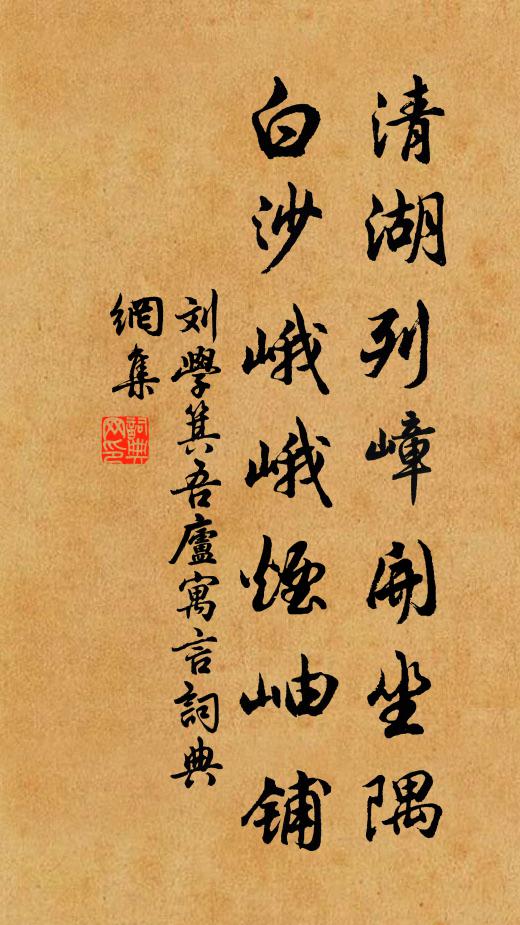 清湖列嶂開坐隅
白沙峨峨煙岫鋪
刘學箕吾廬寓言詞典
網集
詞典
网印